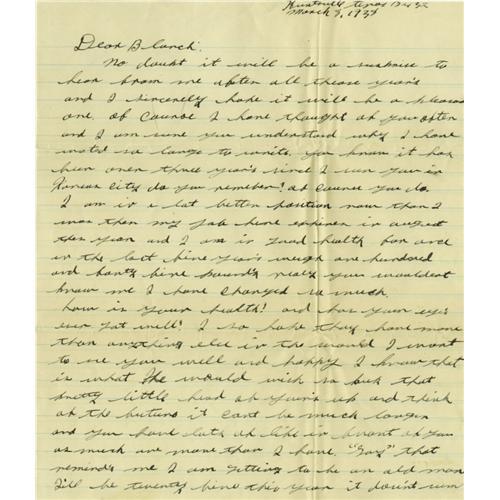 Huntsville Texas Box 32
March 3, 1938
Dear Blanch:
No doubt it will be a surprise to
hear from me after all these years
and I sincerely hope it will be a pleasant
one. of course I have thought of you often
and I am sure you understand why I have
waited so long to write. you know it has
been over three years since I seen you in
Kansas City do you remember! of course you do.
I am in a lot better position now than I
was then my job here expires in august
this year and I am in good health for
in the last nine years weigh one hundred
and forty nine pounds realy you wouldent
know me I have changed so much.
how is your health! and has your eye
ever got well! I so hope they have more
than anything else in the world I want
to see you well and happy I know that
is what he would wish so buk that
pretty little head of yours up and think
of the future it cant be much longer
and you have lots of life in front of you
as much are more than I have, that
reminds me I am getting to be an old man
I'll be twenty nine this year it dosnt seem